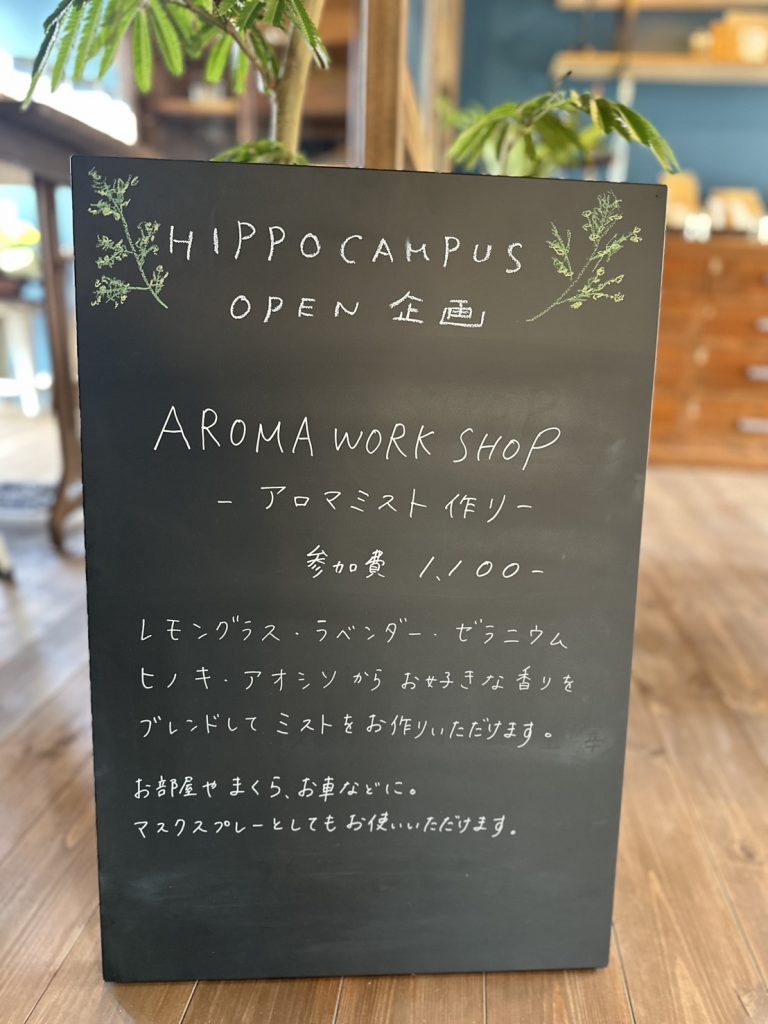 HIPPOCAMPUS
OPEN 企画
AROMA WORK SHOP
- アロマミスト作り -
参加費 1,100-
レモングラス・ラベンダー・ゼラニウム
ヒノキ・アオシソから お好きな香りを
ブレンドして ミストをお作りいただけます。
お部屋や まくら、お車などに。
マスクスプレーとしても お使いいただけます。